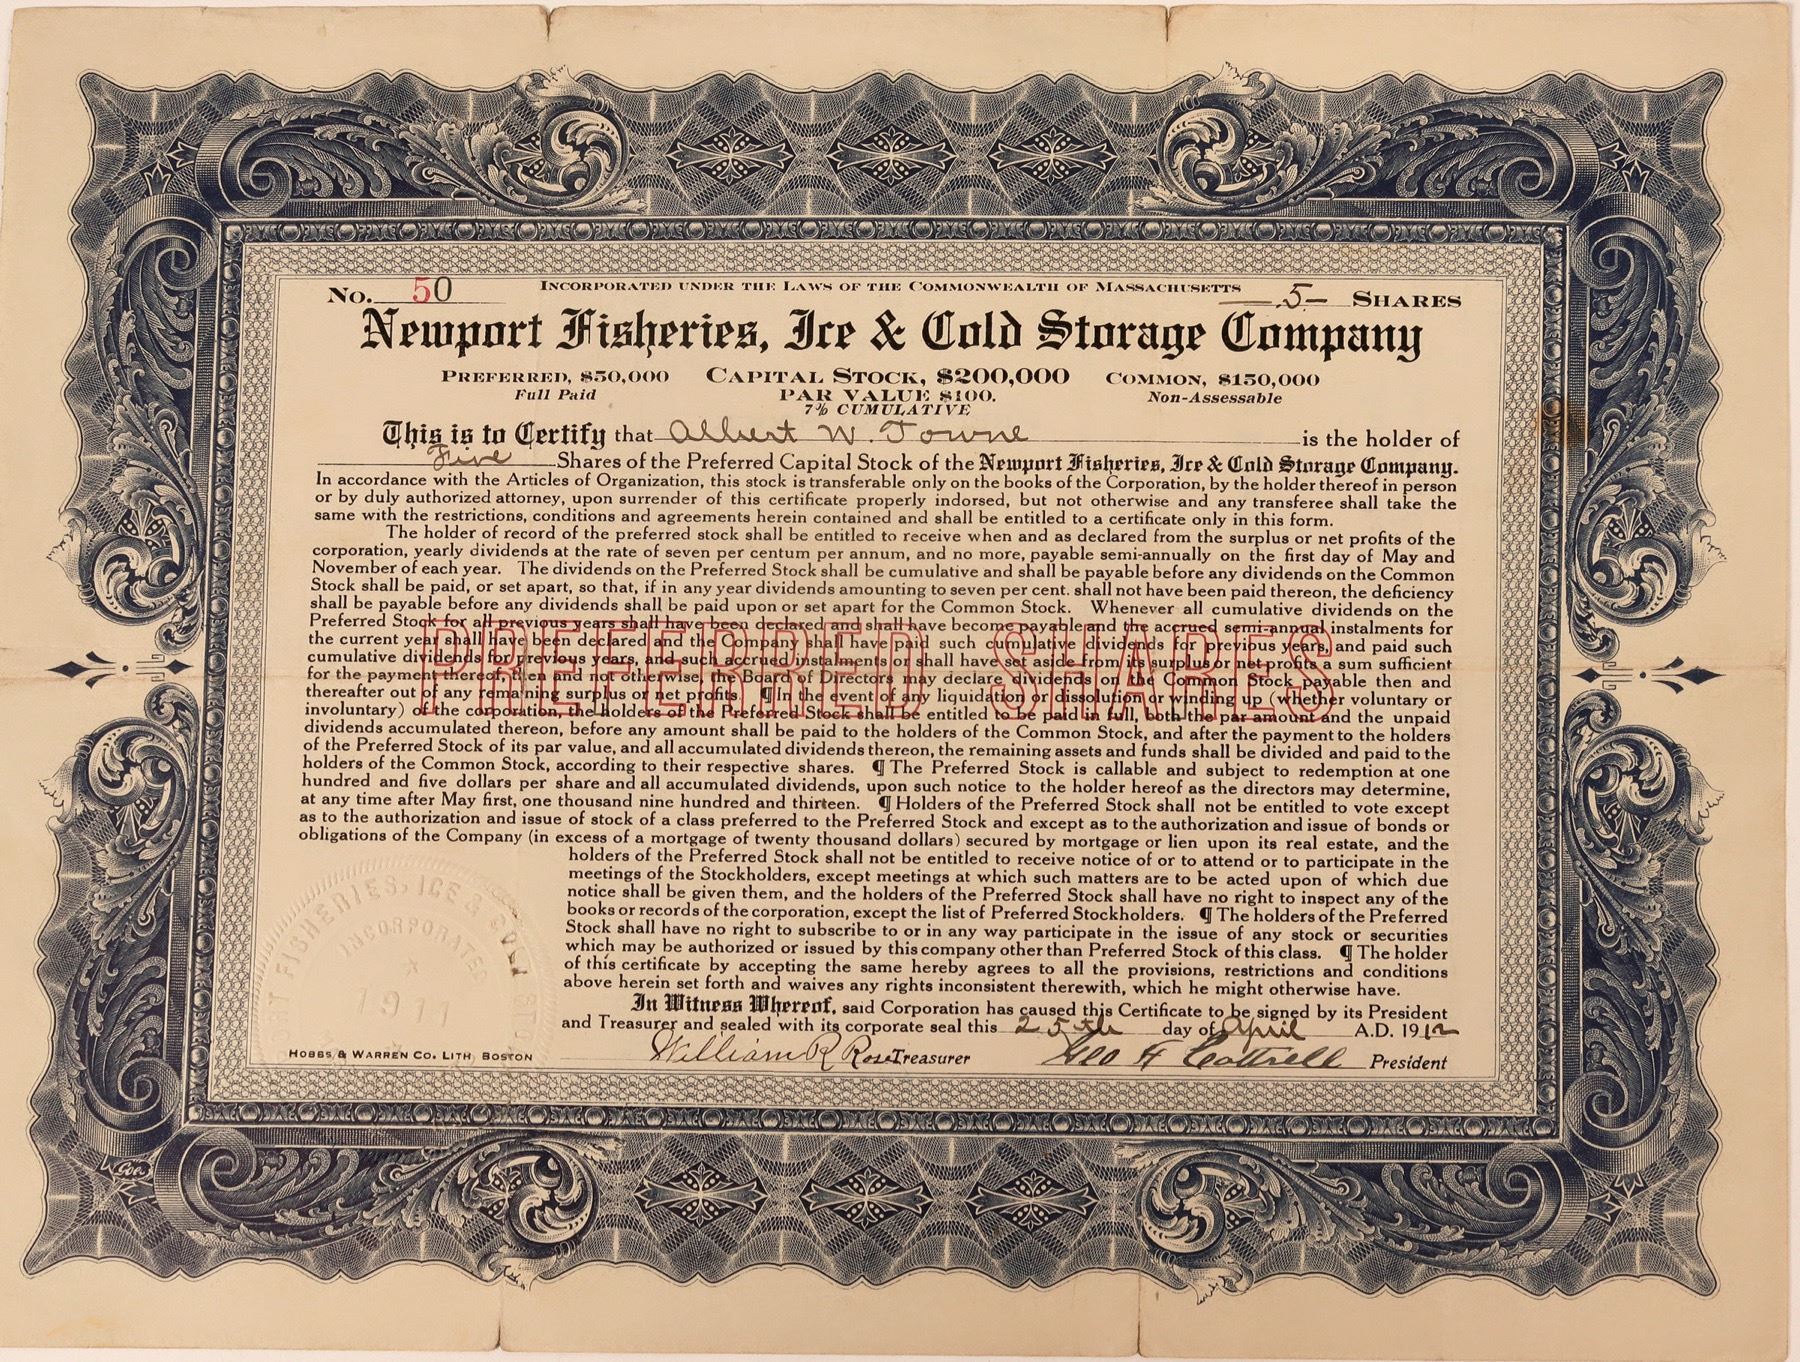 No. 50 Incorporated under the Laws of the Commonwealth of Massachusetts —5— Shares
Newport Fisheries, Ice & Cold Storage Company
Preferred, $50,000 Capital Stock, $200,000 Common, $150,000
Full Paid Par Value $100. Non-Assessable
7% Cumulative
This is to Certify that Albert W. Towne is the holder of
Five Shares of the Preferred Capital Stock of the Newport Fisheries, Ice & Cold Storage Company.
In accordance with the Articles of Organization, this stock is transferable only on the books of the Corporation, by the holder thereof in person
or by duly authorized attorney, upon surrender of this certificate properly indorsed, but not otherwise and any transferee shall take the
same with the restrictions, conditions and agreements herein contained and shall be entitled to a certificate only in this form.
The holder of record of the preferred stock shall be entitled to receive when and as declared from the surplus or net profits of the
corporation, yearly dividends at the rate of seven per centum per annum, and no more, payable semi-annually on the first day of May and
November of each year. The dividends on the Preferred Stock shall be cumulative and shall be payable before any dividends on the Common
Stock shall be paid, or set apart, so that, if in any year dividends amounting to seven per cent. shall not have been paid thereon, the deficiency
shall be payable before any dividends shall be paid upon or set apart for the Common Stock. Whenever all cumulative dividends on the
Preferred Stock for all previous years shall have been declared and shall have become payable and the accrued semi-annual instalments for
the current year shall have been declared and the Company shall have paid such cumulative dividends for previous years, and paid such
cumulative dividends for previous years, and such accrued instalments or shall have set aside from its surplus or net profits a sum sufficient
for the payment thereof, then and not otherwise, the Board of Directors may declare dividends on the Common Stock payable then and
thereafter out of any remaining surplus or net profits. ¶ In the event of any liquidation or dissolution or winding up (whether voluntary or
involuntary) of the corporation, the holders of the Preferred Stock shall be entitled to be paid in full, both the par amount and the unpaid
dividends accumulated thereon, before any amount shall be paid to the holders of the Common Stock, and after the payment to the holders
of the Preferred Stock of its par value, and all accumulated dividends thereon, the remaining assets and funds shall be divided and paid to the
holders of the Common Stock, according to their respective shares. ¶ The Preferred Stock is callable and subject to redemption at one
hundred and five dollars per share and all accumulated dividends, upon such notice to the holder hereof as the directors may determine,
at any time after May first, one thousand nine hundred and thirteen. ¶ Holders of the Preferred Stock shall not be entitled to vote except
as to the authorization and issue of stock of a class preferred to the Preferred Stock and except as to the authorization and issue of bonds or
obligations of the Company (in excess of a mortgage of twenty thousand dollars) secured by mortgage or lien upon its real estate, and the
holders of the Preferred Stock shall not be entitled to receive notice of or to attend or to participate in the
meetings of the Stockholders, except meetings at which such matters are to be acted upon of which due
notice shall be given them, and the holders of the Preferred Stock shall have no right to inspect any of the
books or records of the corporation, except the list of Preferred Stockholders. ¶ The holders of the Preferred
Stock shall have no right to subscribe to or in any way participate in the issue of any stock or securities
which may be authorized or issued by this company other than Preferred Stock of this class. ¶ The holder
of this certificate by accepting the same hereby agrees to all the provisions, restrictions and conditions
above herein set forth and waives any rights inconsistent therewith, which he might otherwise have.
In Witness Whereof, said Corporation has caused this Certificate to be signed by its President
and Treasurer and sealed with its corporate seal this 25th day of April A.D. 1912
William R Rose Treasurer Geo H Cottrell President
PREFERRED SHARES
FISHERIES, ICE & COLD STO
INCORPORATED
1911
Hobbs & Warren Co. Lith. Boston